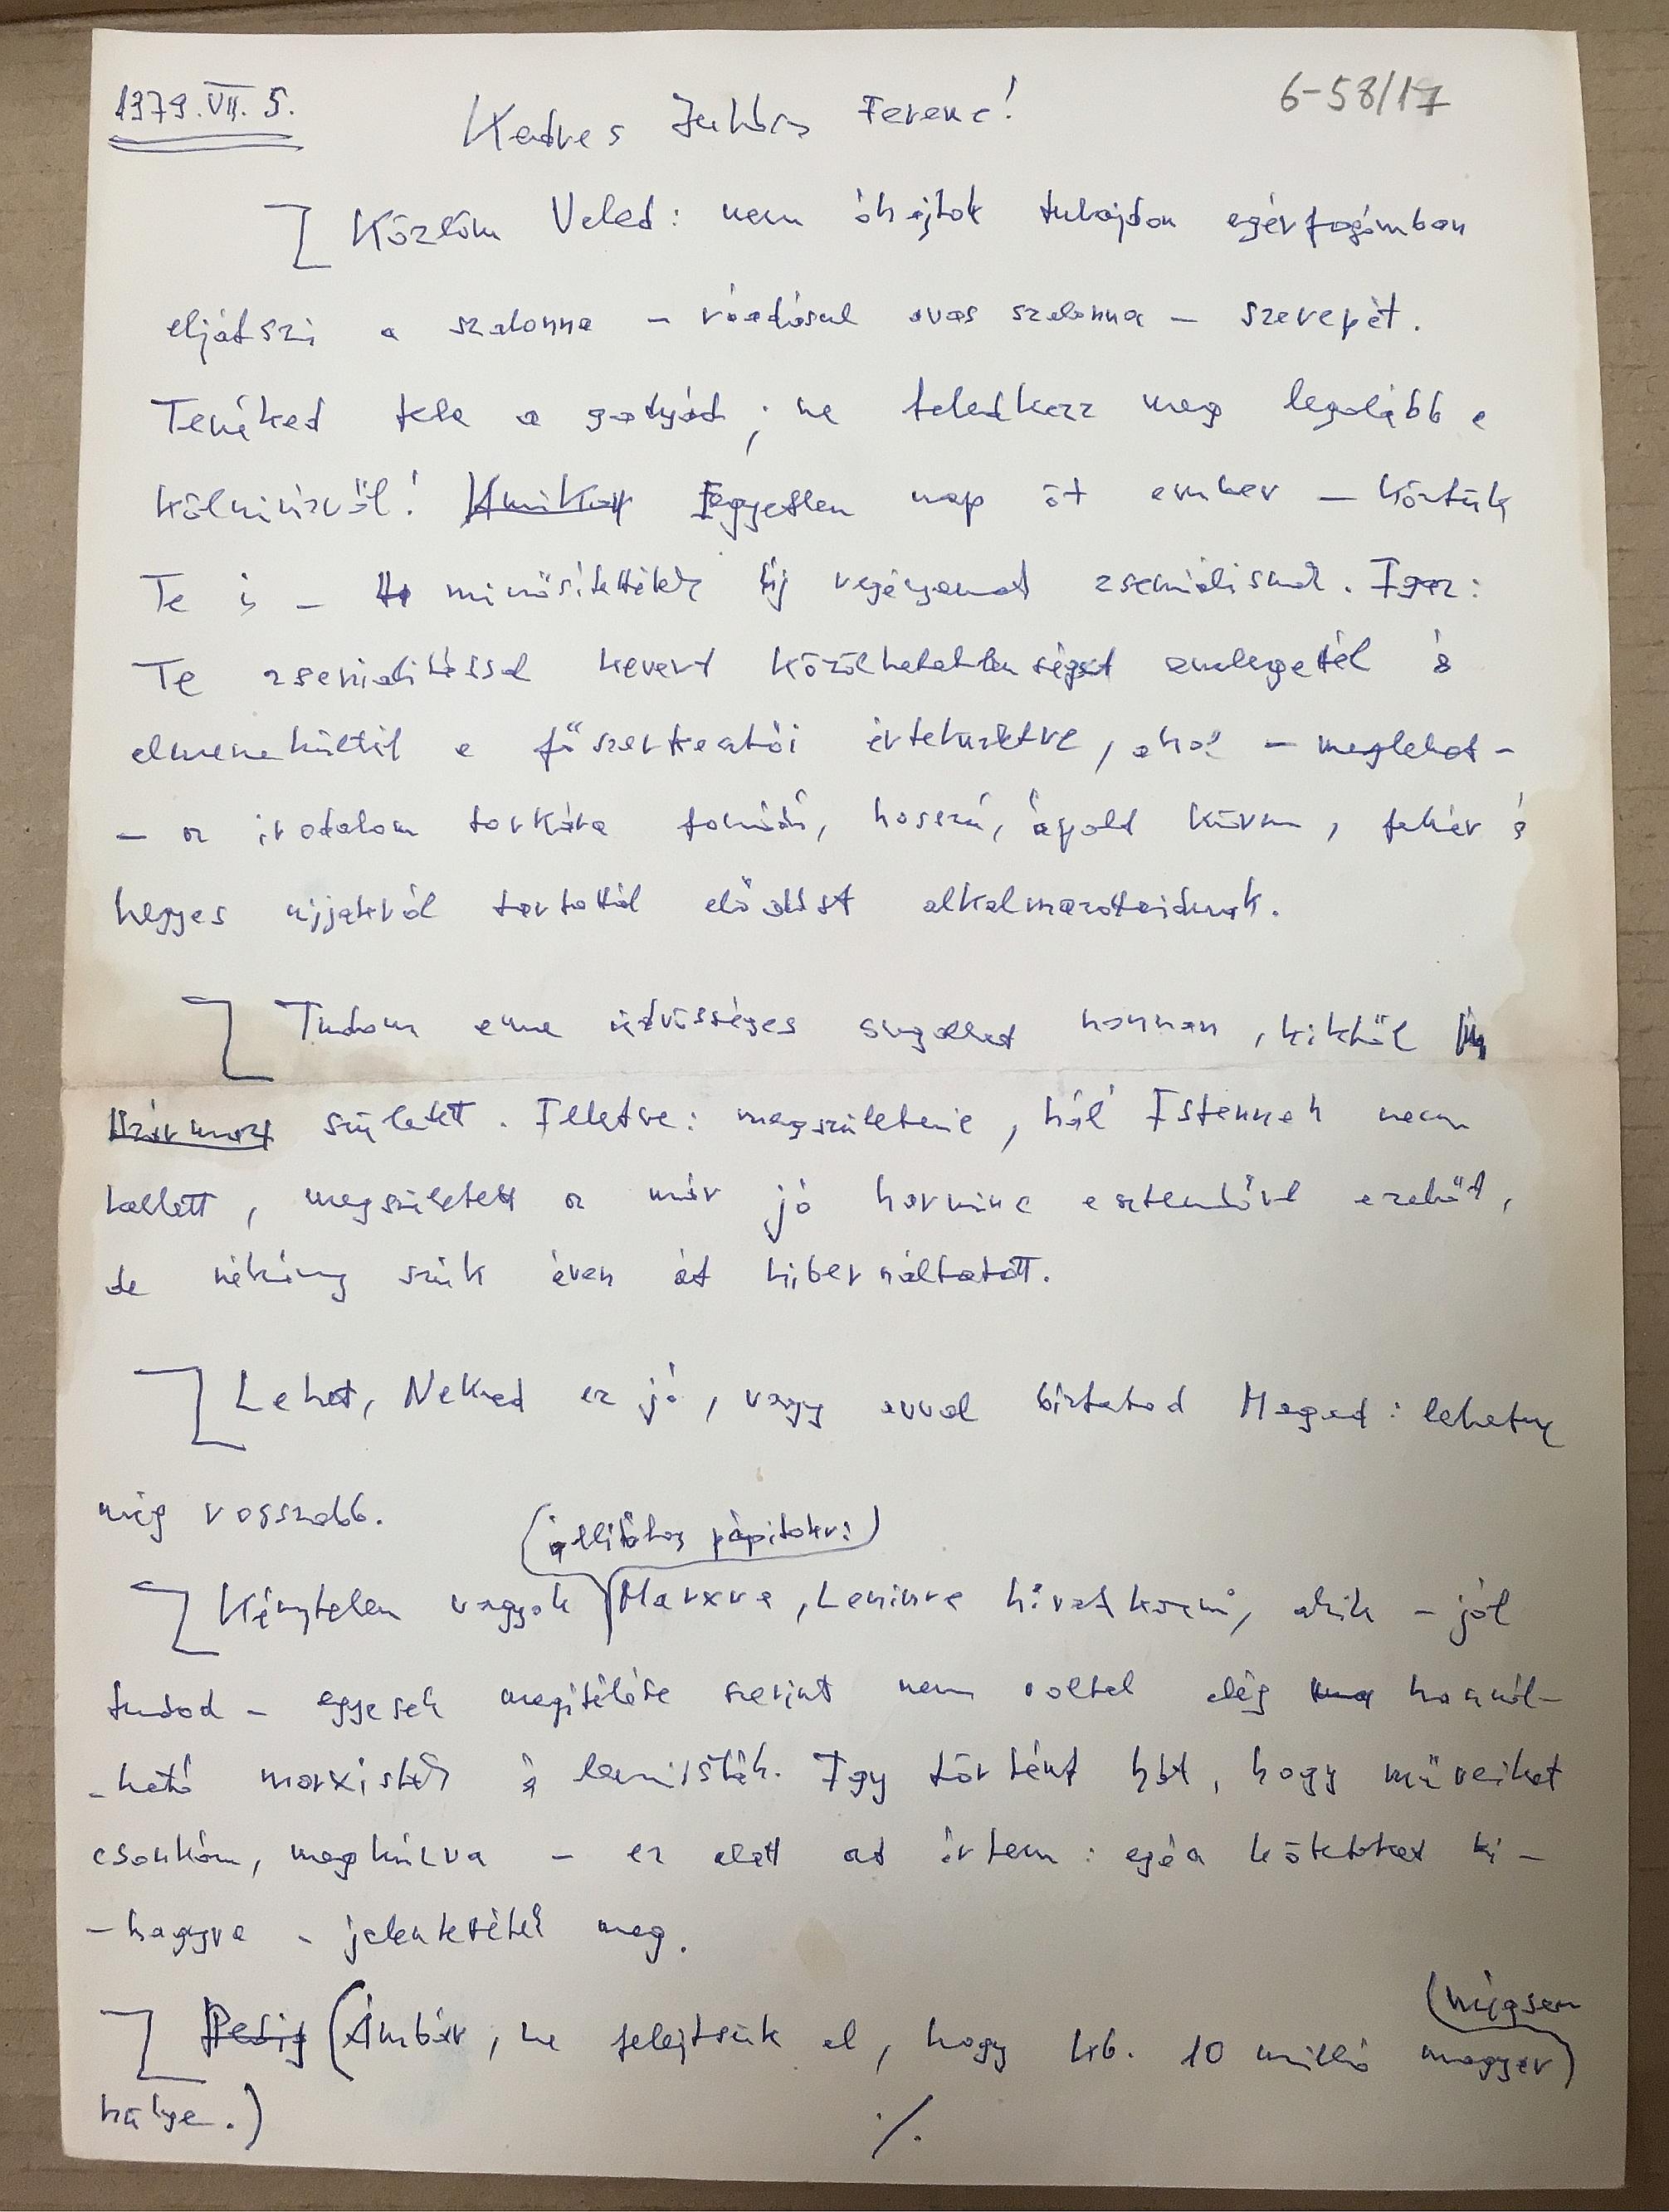 1979. VII. 5.
6-58/17
Kedves Juhász Ferenc!
Közlöm Veled: nem óhajtok tulajdon egérfogómban
eljátszi a szalonna – ráadásul avas szalonna – szerepét.
Tenéked tele a gatyád; ne feledkezz meg legalább a
kölnivízről! Amikor Egyetlen nap öt ember – köztük
Te is – minősítették új regényemet zseniálisnak. Igaz:
Te zsenialitással kevert közölhetetlenséget emlegettél és
elmenekültél a főszerkesztői értekezletre, ahol – meglehet –
– az irodalom torkára fonódó, hosszú, ápolt körmű, fehér és
hegyes ujjakról tartottál előadást alkalmazottaidnak.
Tudom eme üdvösséges sugallat honnan, kiktől
származ született. Illetve: megszületnie, hál' Istennek nem
kellett, megszületett az már jó harminc esztendővel ezelőtt,
de néhány szűk éven át hibernáltatott.
Lehet, Neked ez jó, vagy avval bíztatod Magad: lehetne
még rosszabb.
(állítólag pápitokra:)
Kénytelen vagyok Marxra, Leninre hivatkozni, akik – jól
tudod – egyesek megítélése szerint nem voltak elég használ-
-ható marxisták és leninisták. Igy történt hát, hogy műveiket
csonkán, meghúzva – ez alatt azt értem: egész köteteket ki-
-hagyva – jelentették meg.
(mégsem
Pedig (Ámbár, ne felejtsük el, hogy kb. 10 millió magyar)
hülye.)
./.